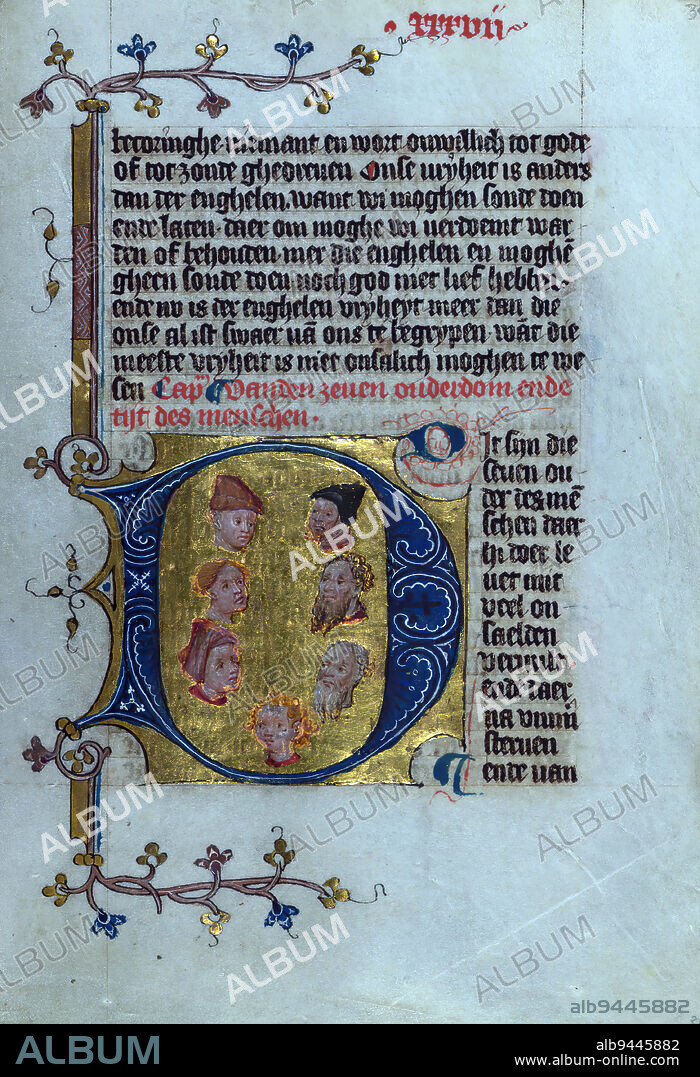 xxxvij
becoringhe niemant en wort onwillich tot gode
of tot zonde ghedreuen Onse vryheit is anders
dan der enghelen. want wi moghen sonde doen
ende laten. daer om moghe wi verdoemt war
den of behouden. mer die enghelen en moghē
gheen sonde doen noch god niet lief hebben.
ende no is der enghelen vryheyt meer dan die
onse al ist swaer vā ons te begrypen. wāt die
meeste vryheit is niet onsalich moghen te we
sen Capᵐ Vanden zeuen ouderdom ende
tijt des menschen.
Dit sijn die
seuen ou
der des mē
schen daer
hi doer le
uet mit
veel on
saelden
ende daer
na
steruen
ende van
ALBUM
alb9445882
ALBUM
alb9445882
www.album-online.com